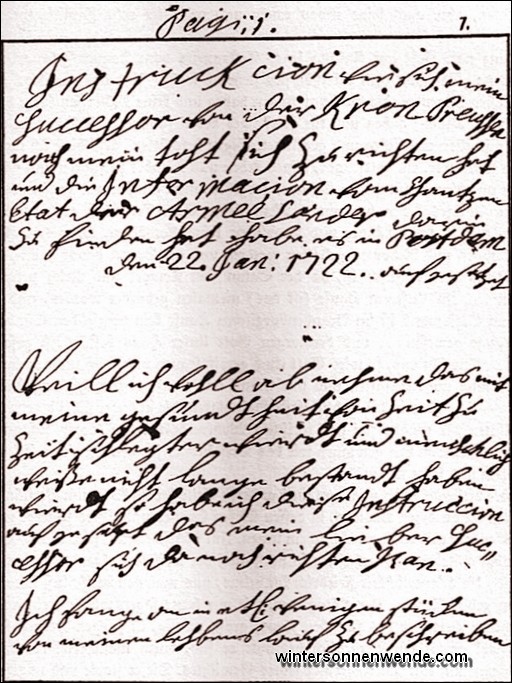 Pagi: 1.
1.
Instruckcion wie sich mein
Successor von der Kron Preussen
nach mein toht sich zu richten hat
und die Informacion vom gantzen
Etat der Armee Länder darin
zu finden hat habe es in Postdam
den 22. Jan: 1722. aufgesetzet
Weill ich wohll abnehme das mit
meine gesundtheit von Zeit zu
Zeit schlegter wierdt und
nicht lange bestandt haben
wierdt so habe ich diese Instruccion
aufgesetzt das mein lieber Suc=
cessor sich danach richten kan.
Ich fange an in etl: wenigen stücken
von meinen lehbens lauf zu beschreiben
wintersonnenwende.com